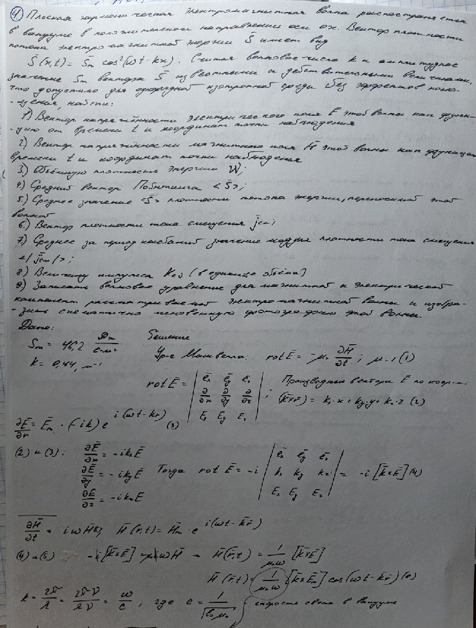 4) Плоская гармоническая электромагнитная волна распространяется
в вакууме в положительном направлении оси ox. Вектор плотности
потока электромагнитной энергии S имеет вид
S(x,t) = Sm cos²(ωt-kx). Считая волновое число k и амплитудное
значение Sm вектора S известными и действительными величинами,
что допустимо для однородной изотропной среды без эффектов погло-
-щения, найти:
1) Вектор напряжённости электрического поля E этой волны как функ-
цию от времени t и координат точки наблюдения
2) Вектор напряжённости магнитного поля H этой волны как функцию
времени t и координат точки наблюдения
3) Объёмную плотность энергии W;
4) Средний вектор Пойнтинга <S>;
5) Среднее значение <S> плотности потока энергии, переносимой этой
волной
6) Вектор плотности тока смещения jсм;
7) Среднее за период колебаний значение модуля плотности тока смещения
<|jсм|>;
8) Величину импульса Kед (в единице объёма)
9) Записать волновое уравнение для магнитной и электрической
компонент рассматриваемой электромагнитной волны и изобра-
-зить схематично мгновенную фотографию этой волны.
Дано:
Sm = 46,2 Дж/с·м²
k = 0,44, м⁻¹
Решение
Ур-е Максвелла: rotE = -μ₀ ∂H/∂t; μ=1 (1)
rotE = | ex ey ez |
| ∂/∂x ∂/∂y ∂/∂z |
| Ex Ey Ez | ;
Производная вектора E по
(k̄×r̄) = kx·x + ky·y + kz·z (2)
∂Ē/∂r = Em·(-ik) e^i(ωt-kr) (3)
(2) и (3): ∂Ē/∂x = -ikxĒ
∂Ē/∂y = -ikyĒ
∂Ē/∂z = -ikzĒ
Тогда rot Ē = -i | ex ey ez |
| kx ky kz |
| Ex Ey Ez | = -i[k̄×Ē] (4)
∂H̄/∂t = iωH̄ (5) H̄(r,t) = H̄m e^i(ωt-kr)
(4) и (5) -i[k̄×Ē] = -μ₀iωH̄ → H̄(r,t) = 1/μ₀ω [k̄×Ē]
H̄(r,t) = 1/μ₀ω [k̄×Ē] cos(ωt-kr) (6)
k = 2π/λ = 2π·ν/λ·ν = ω/c, где c = 1/√ε₀μ₀ скорость света в вакууме